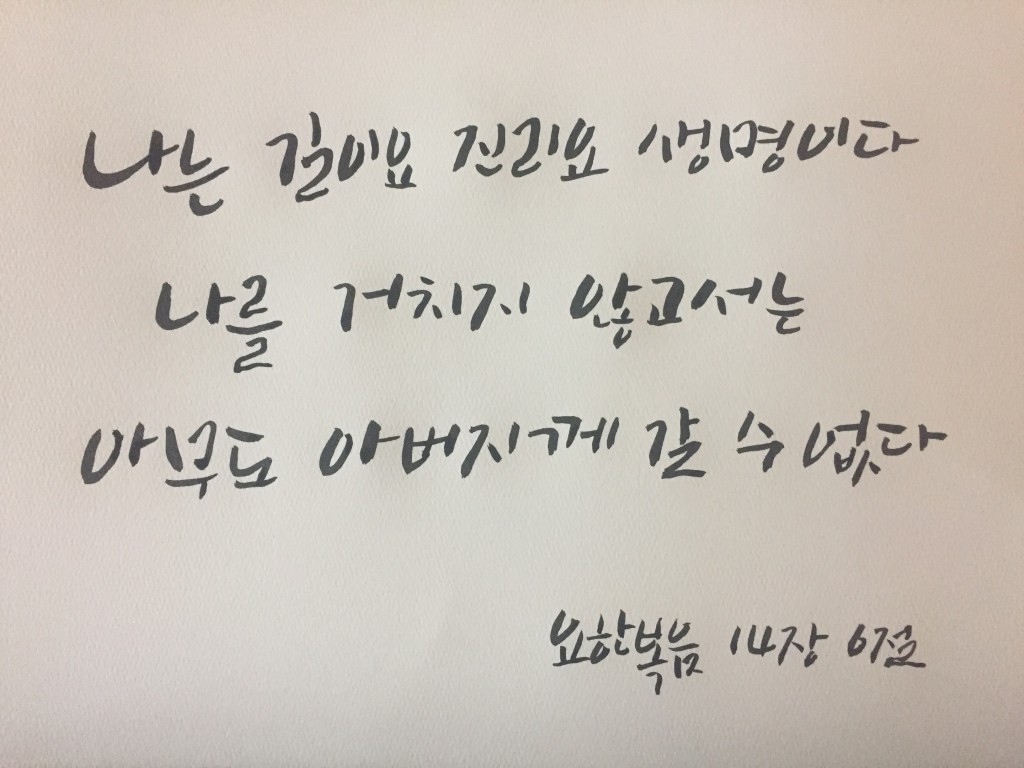 나는 길이요 진리요 생명이다
나를 거치지 않고서는
아무도 아버지께 갈 수 없다
요한복음 14장 6절